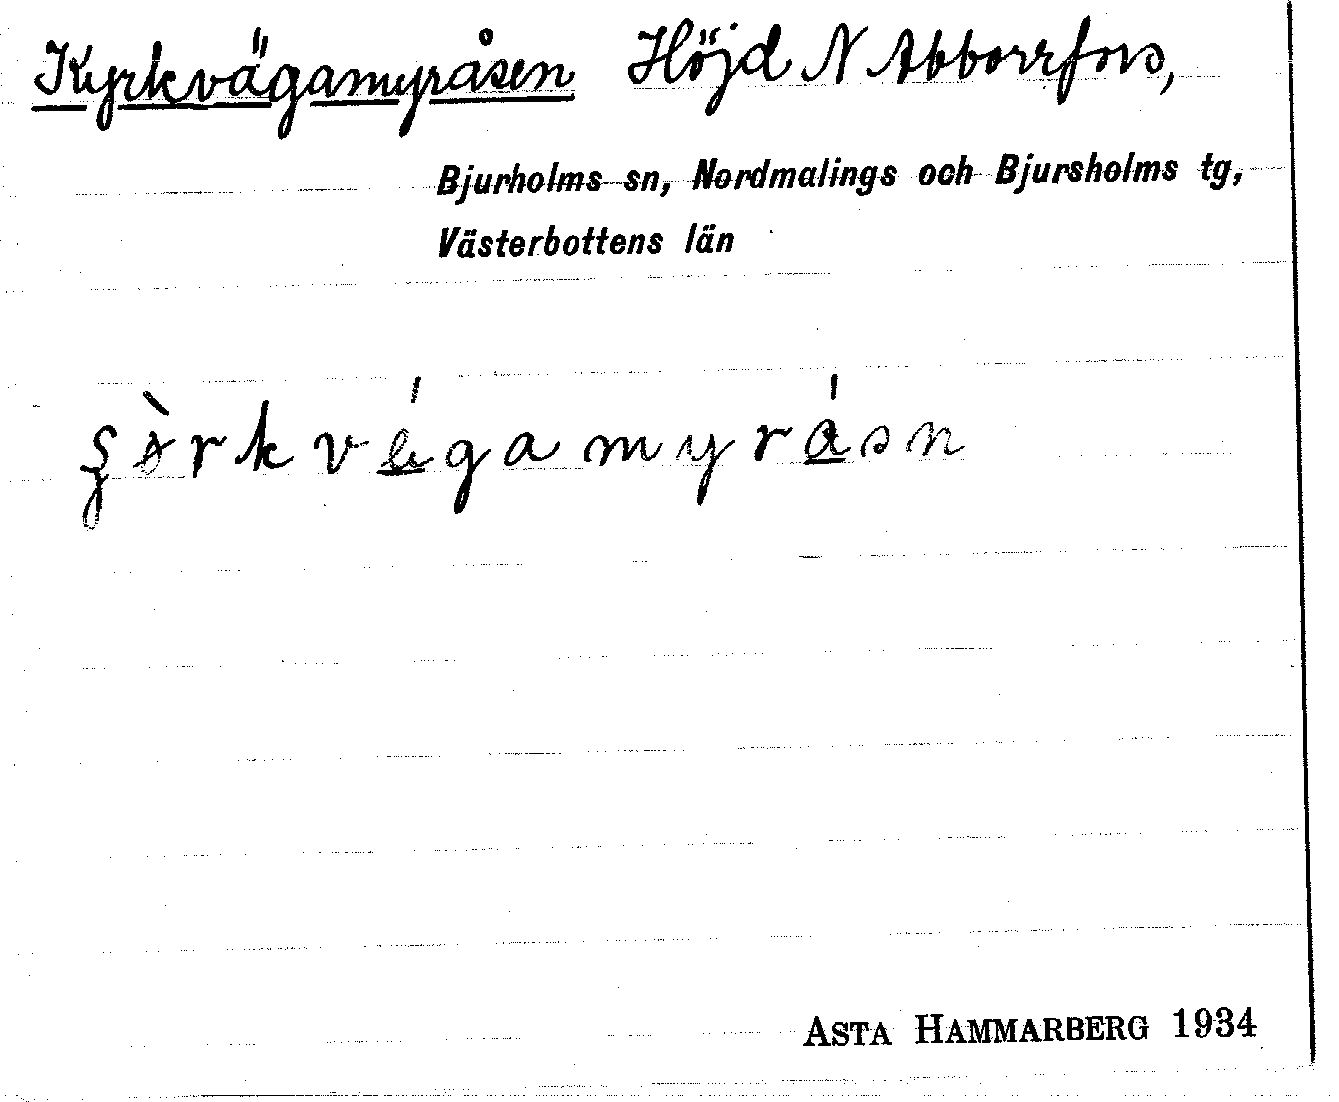 Kyrkvägamyråsen Höjd N Abborrfors,
Bjurholms sn, Nordmalings och Bjursholms tg,
Västerbottens län
ASTA HAMMARBERG 1934